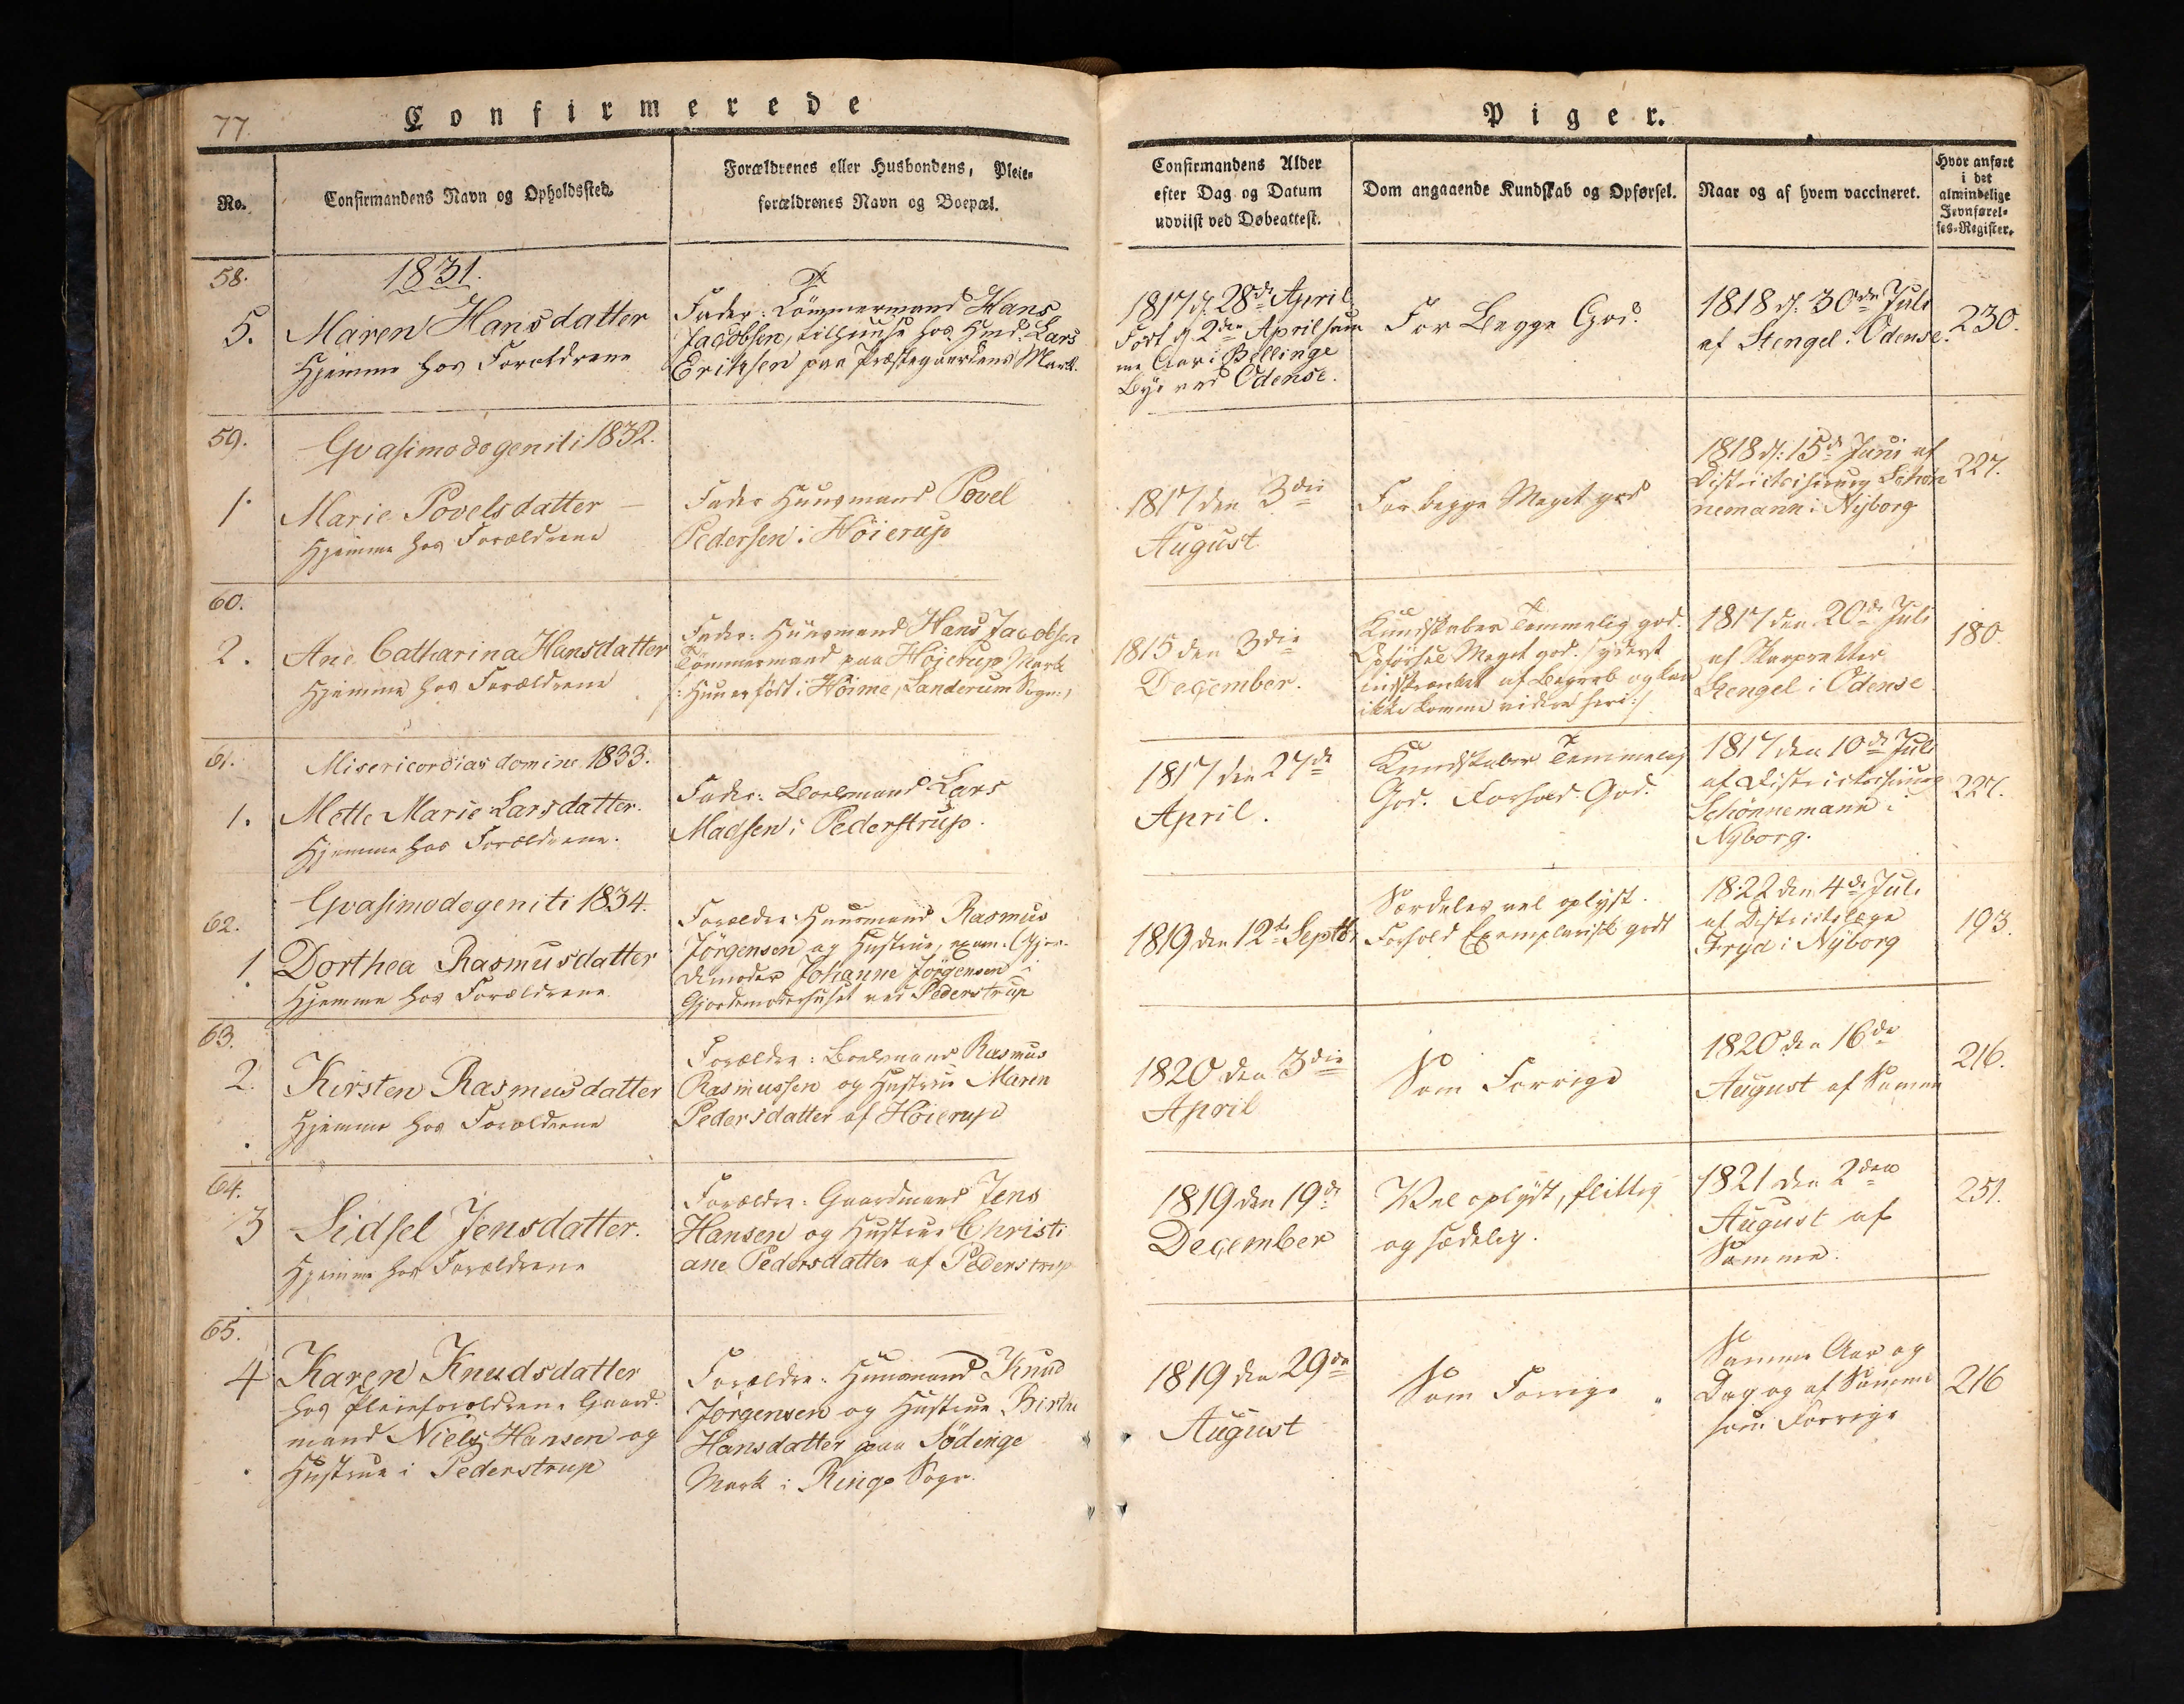 77.
Confirmerede
Piger.
No.
Confirmandens Navn og Opholdssted.
Forældrenes eller Husbondens, Pleie-
forældrenes Navn og Boepæl.
Confirmandens Alder
efter Dag og Datum
udviist ved Døbeattest.
Dom angaaende Kundskab og Opførsel.
Naar og af hvem vaccineret.
Hvor anført
i det
almindelige
Jevnførel-
ses-Register.
58.
1831.
5.
Maren Hansdatter
Hjemme hos Forældrene
Fader: Tömmermand Hans
Jacobsen, tilhuuse hos Hmd. Lars
Eriksen paa Præstegaardens Mark.
1817 d. 28de April
Født d 2den April sam
me Aar i Bellinge
Bye ved Odense.
For Begge God.
1818 d. 30te Juli
af Stengel i Odense.
230.
59.
Qvasimodogeniti 1832.
1.
Marie Povelsdatter
Hjemme hos Forældrene
Fader Huusmand Povel
Pedersen i Höierup
1817 den 3die
August
For begge Meget god
1818 d: 15de Juni af
Districtschirurg Schön
nemann i Nyborg
227.
60.
2.
Ane Catharina Hansdatter
Hjemme hos Forældrene
Fader: Huusmand Hans Jacobsen
Tömmermand paa Höjerup Mark
/: Hun er född i Höime, Sanderum Sogn :/
1815 den 3die
December.
Kundskaber Temmelig god.
Opförsel Meget god. /: yderst
indskrænket af Begreb og kan
ikke komme videre heri :/
1817 den 20de Juli
af Skarpretter
Stengel i Odense
180.
61.
Misericordias domini 1833.
1.
Mette Marie Larsdatter.
Hjemme hos Forældrene.
Fader: Boelsmand Lars
Madsen i Pederstrup.
1817 den 27de
April.
Kundskaber Temmelig
God. Forhold God.
1817 den 10de Juli
af Districtschirurg
Schönnemann i
Nyborg.
227.
62.
Qvasimodogeniti 1834.
1.
Dorthea Rasmusdatter
Hjemme hos Forældrene.
Forældre: Huusmand Rasmus
Jörgensen og Hustrue, exam. Gjor-
demoder Johanne Jörgensen i
Gjordemoderhuset ved Pederstrup
1819 den 12te Septbr
Særdeles vel oplyst.
Forhold Exemplarisk godt
1822 den 4de Juli
af Districtslæge
Fryd i Nyborg
193.
63.
2.
Kirsten Rasmusdatter
Hjemme hos Forældrene
Forældre: Boelsmand Rasmus
Rasmussen og Hustrue Maren
Pedersdatter af Höierup
1820 den 3die
April
Som Forrige
1820 den 16de
August af Samme
216.
64.
3
Sidsel Jensdatter.
Hjemme hos Forældrene
Forældre: Gaardmand Jens
Hansen og Hustrue Christi
ane Pedersdatter af Pederstrup
1819 den 19de
December
Vel oplyst, flittig
og sædelig.
1821 den 2den
August af
Samme.
251.
65.
4
Karen Knudsdatter
hos Pleieforældrene Gaard-
mand Niels Hansen og
Hustrue i Pederstrup
Forældre: Huusmand Knud
Jörgensen og Hustrue Birthe
Hansdatter paa Södinge
Mark i Ringe Sogn.
1819 den 29de
August
Som Forrige
Samme Aar og
Dag og af Samme
som Forrige
216